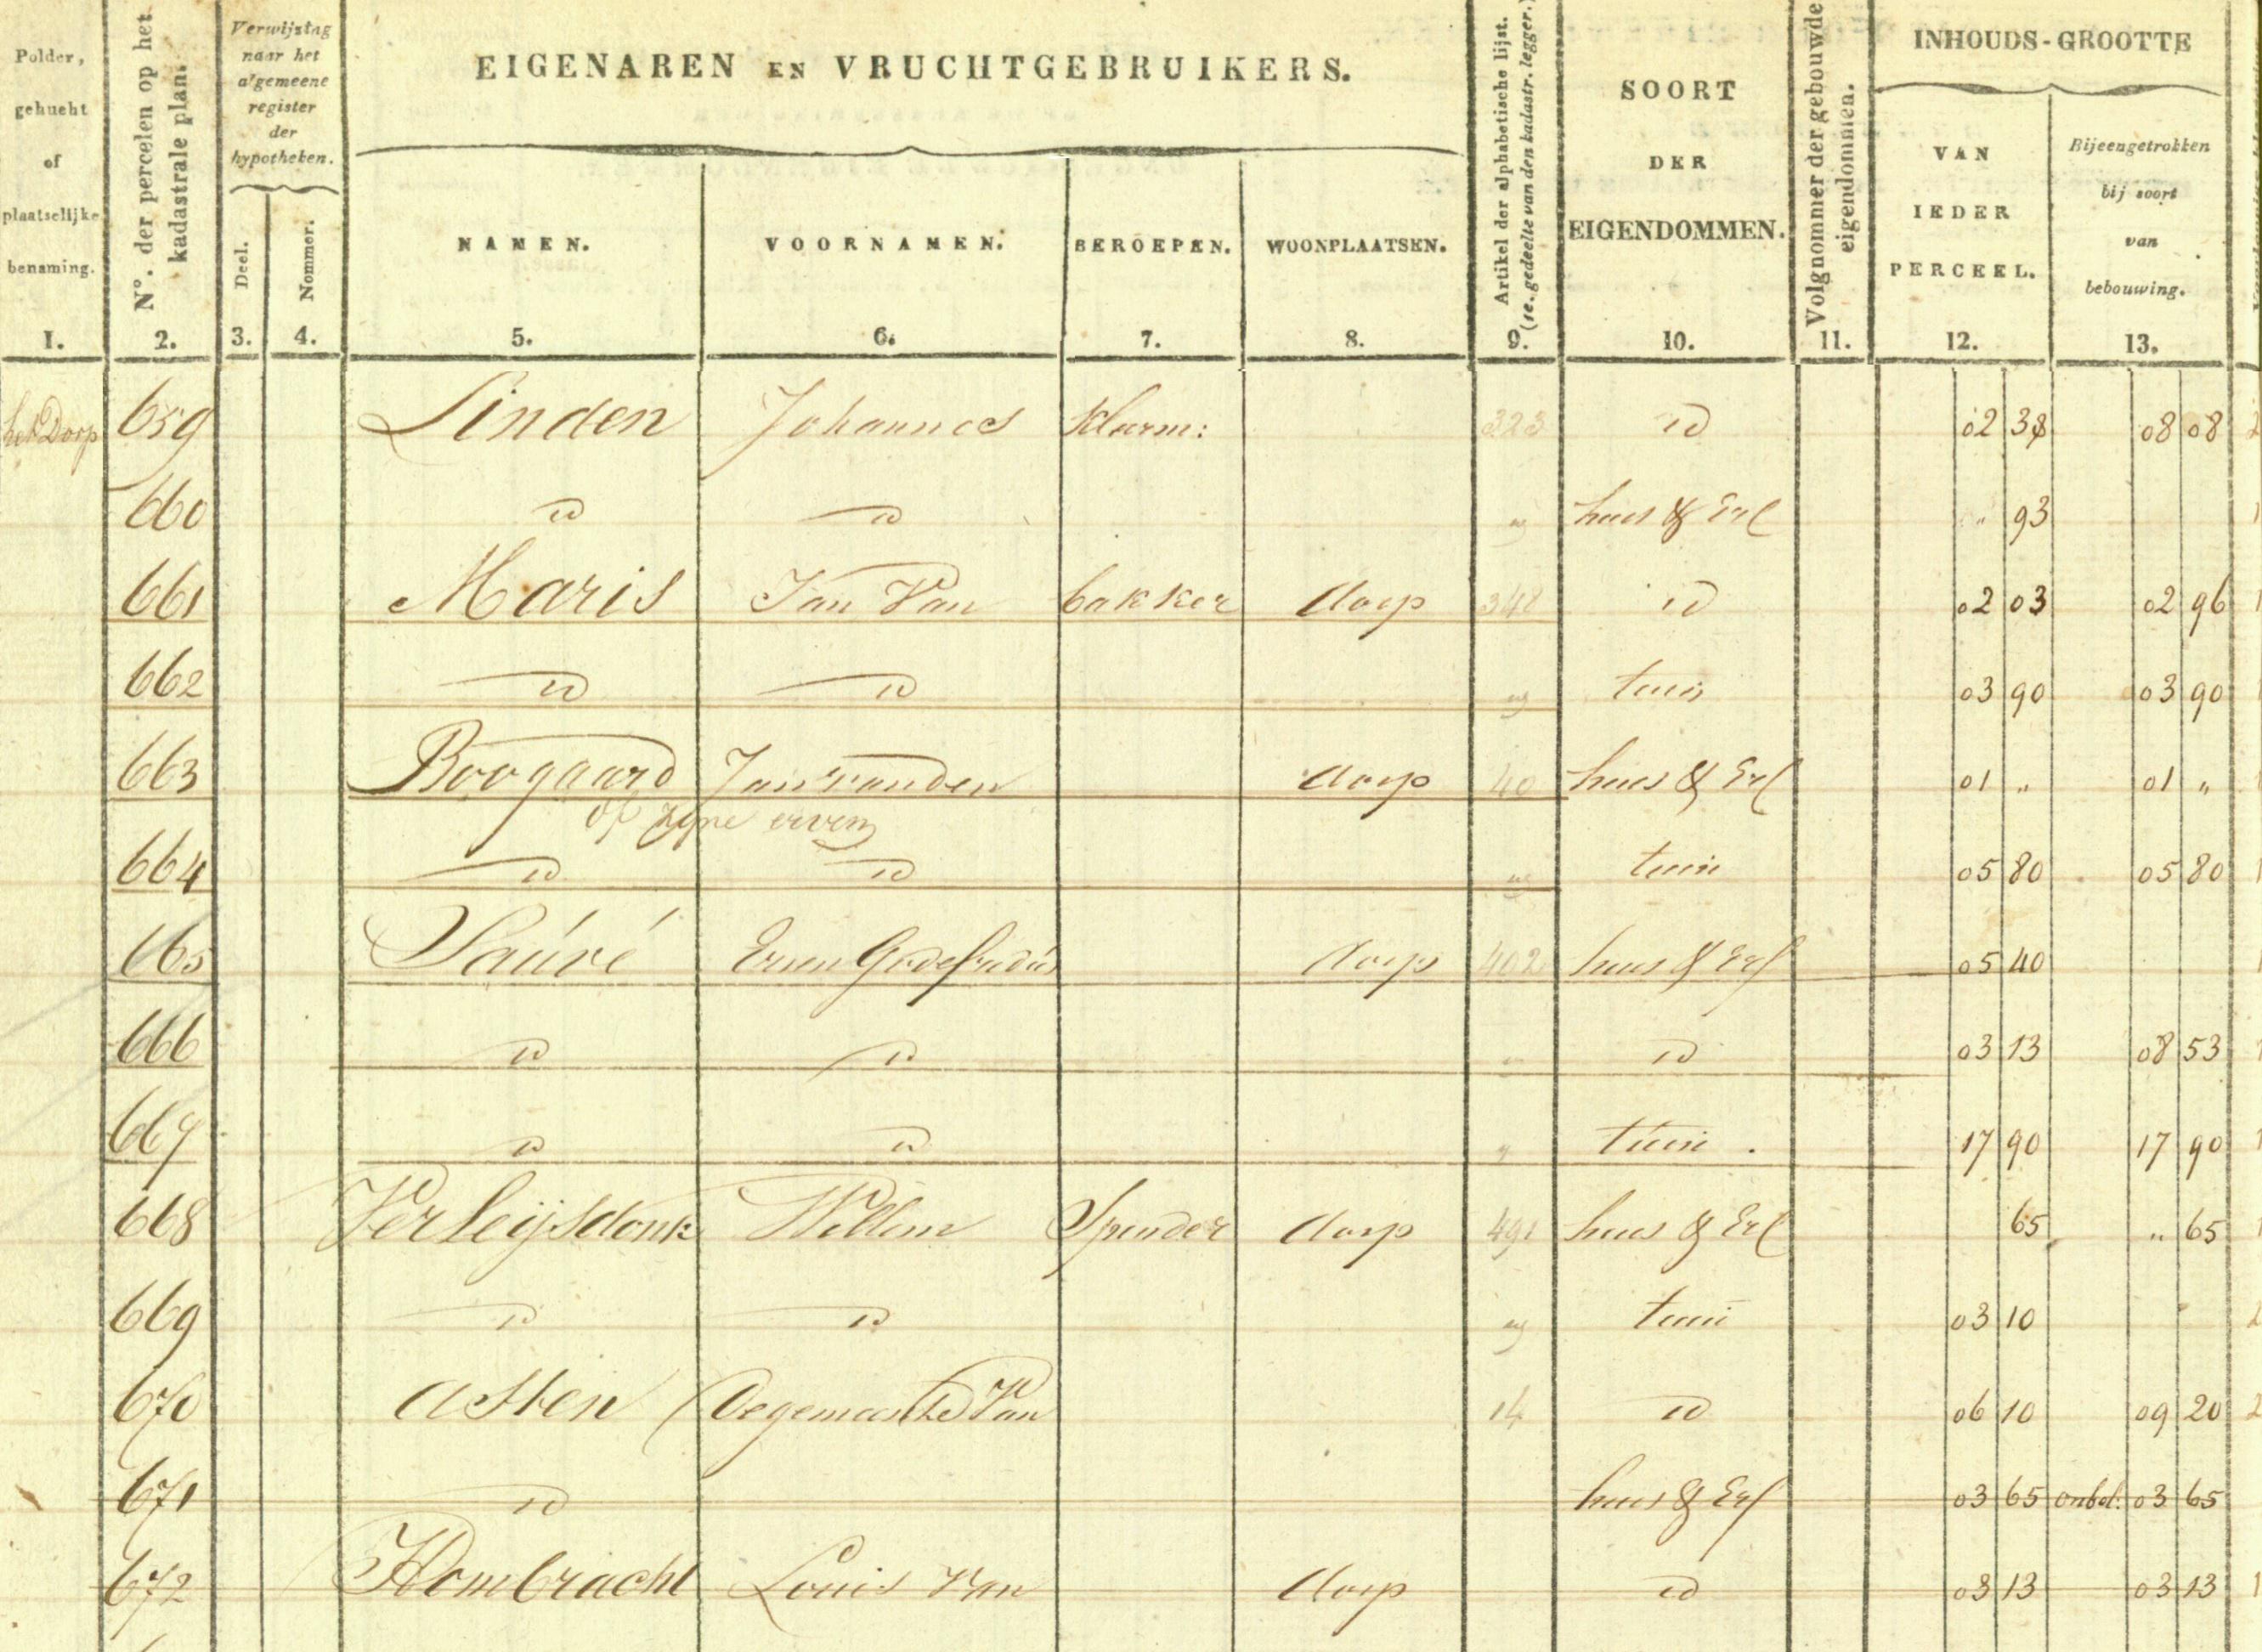 Polder, gehucht of plaatselijke benaming.
N°. der percelen op het kadastrale plan.
Verwijzing naar het algemeene register der hypotheken.
EIGENAREN EN VRUCHTGEBRUIKERS.
Artikel der alphabetische lijst. (1e. gedeelte van den kadastr. legger.)
SOORT DER EIGENDOMMEN.
Volgnommer der gebouwde eigendommen.
INHOUDS-GROOTTE
Deel.
Nommer.
NAMEN.
VOORNAMEN.
BEROEPEN.
WOONPLAATSEN.
VAN IEDER PERCEEL.
Bijeengetrokken bij soort van bebouwing.
1. 2. 3. 4. 5. 6. 7. 8. 9. 10. 11. 12. 13.
het Dorp 659 Linden Johannes kleerm: 323 id 02 38 08 08 2
660 id id huis & Erf " 93 1
661 Maris Jan Van bakker dorp 348 id 02 03 02 96 1
662 id id tuin 03 90 03 90
663 Boogaard Jan van den dorp 40 huis & Erf 01 " 01 "
op zijne erven
664 id id tuin 05 80 05 80 1
665 Sauvé Erven Godefridus dorp 402 huis & Erf 05 40 1
666 id id id 03 13 08 53 1
667 id id tuin 17 90 17 90 1
668 Verleijsdonk Willem dorp 491 huis & Erf 65 " 65 1
669 id id tuin 03 10 2
670 Asten De gemeente Van 14 id 06 10 09 20 2
671 id huis & Erf 03 65 onbel: 03 65
672 Hombracht Louis Van dorp id 03 13 03 13 1